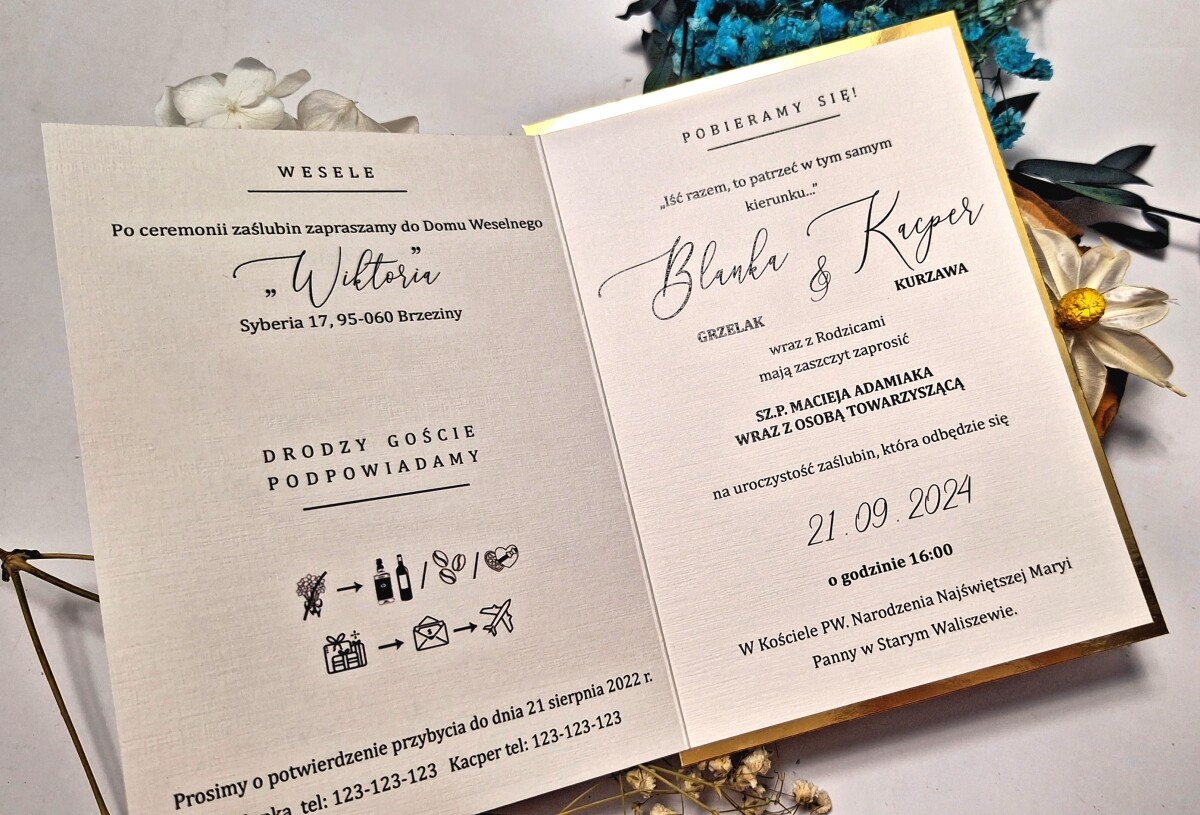 WESELE
Po ceremonii zaślubin zapraszamy do Domu Weselnego
„Wiktoria”
Syberia 17, 95-060 Brzeziny
DRODZY GOŚCIE
PODPOWIADAMY
Prosimy o potwierdzenie przybycia do dnia 21 sierpnia 2022 r.
tel: 123-123-123 Kacper tel: 123-123-123
POBIERAMY SIĘ!
„Iść razem, to patrzeć w tym samym
kierunku...”
Blanka & Kacper
GRZELAK KURZAWA
wraz z Rodzicami
mają zaszczyt zaprosić
SZ.P. MACIEJA ADAMIAKA
WRAZ Z OSOBĄ TOWARZYSZĄCĄ
na uroczystość zaślubin, która odbędzie się
21.09.2024
o godzinie 16:00
W Kościele PW. Narodzenia Najświętszej Maryi
Panny w Starym Waliszewie.